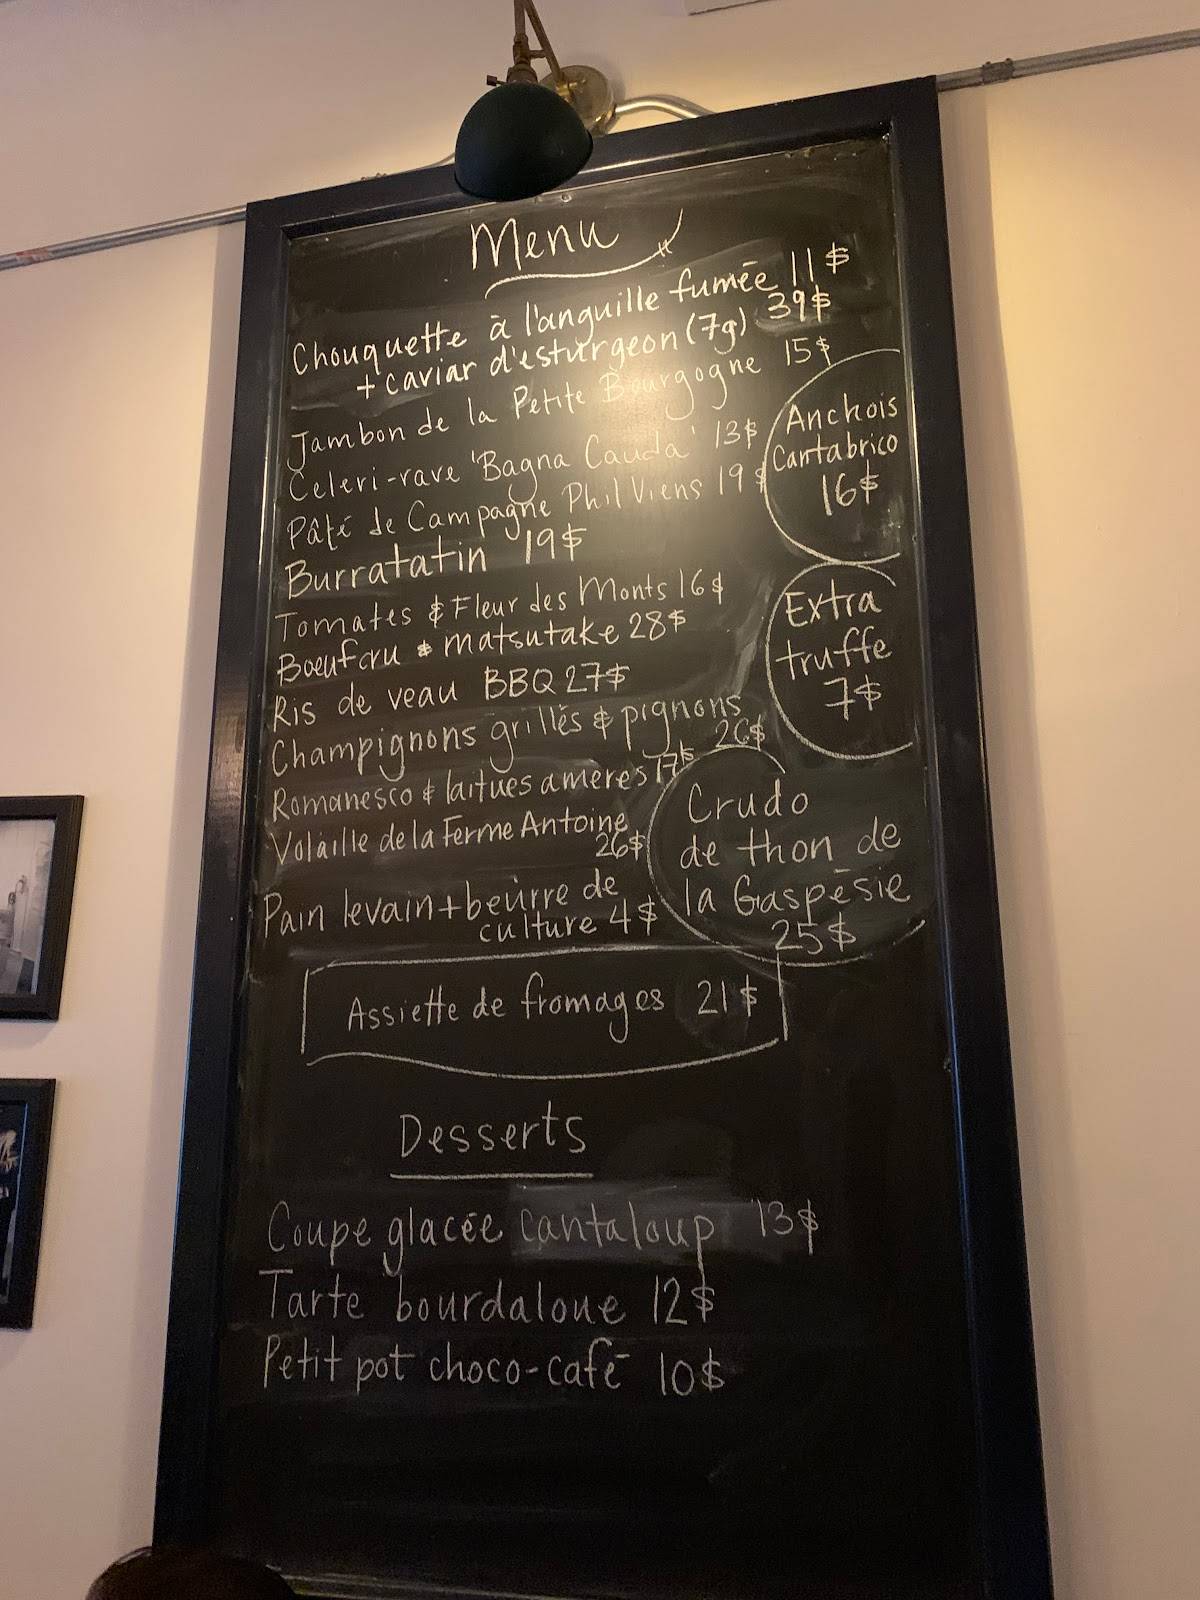 Menu
Chouquette à l'anguille fumée 11$
+ caviar d'esturgeon (7g) 39$
Jambon de la Petite Bourgogne 15$
Céleri-rave 'Bagna Cauda' 13$
Pâté de Campagne Phil Viens 19$
Burratatin 19$
Tomates & Fleur des Monts 16$
Boeuf cru & matsutake 28$
Ris de veau BBQ 27$
Champignons grillés & pignons
26$
Romanesco & laitues amères 17$
Volaille de la Ferme Antoine
26$
Pain levain + beurre de
culture 4$
Anchois
Cantabrico
16$
Extra
truffe
7$
Crudo
de thon de
la Gaspésie
25$
Assiette de fromages 21$
Desserts
Coupe glacée cantaloup 13$
Tarte bourdaloue 12$
Petit pot choco-café 10$